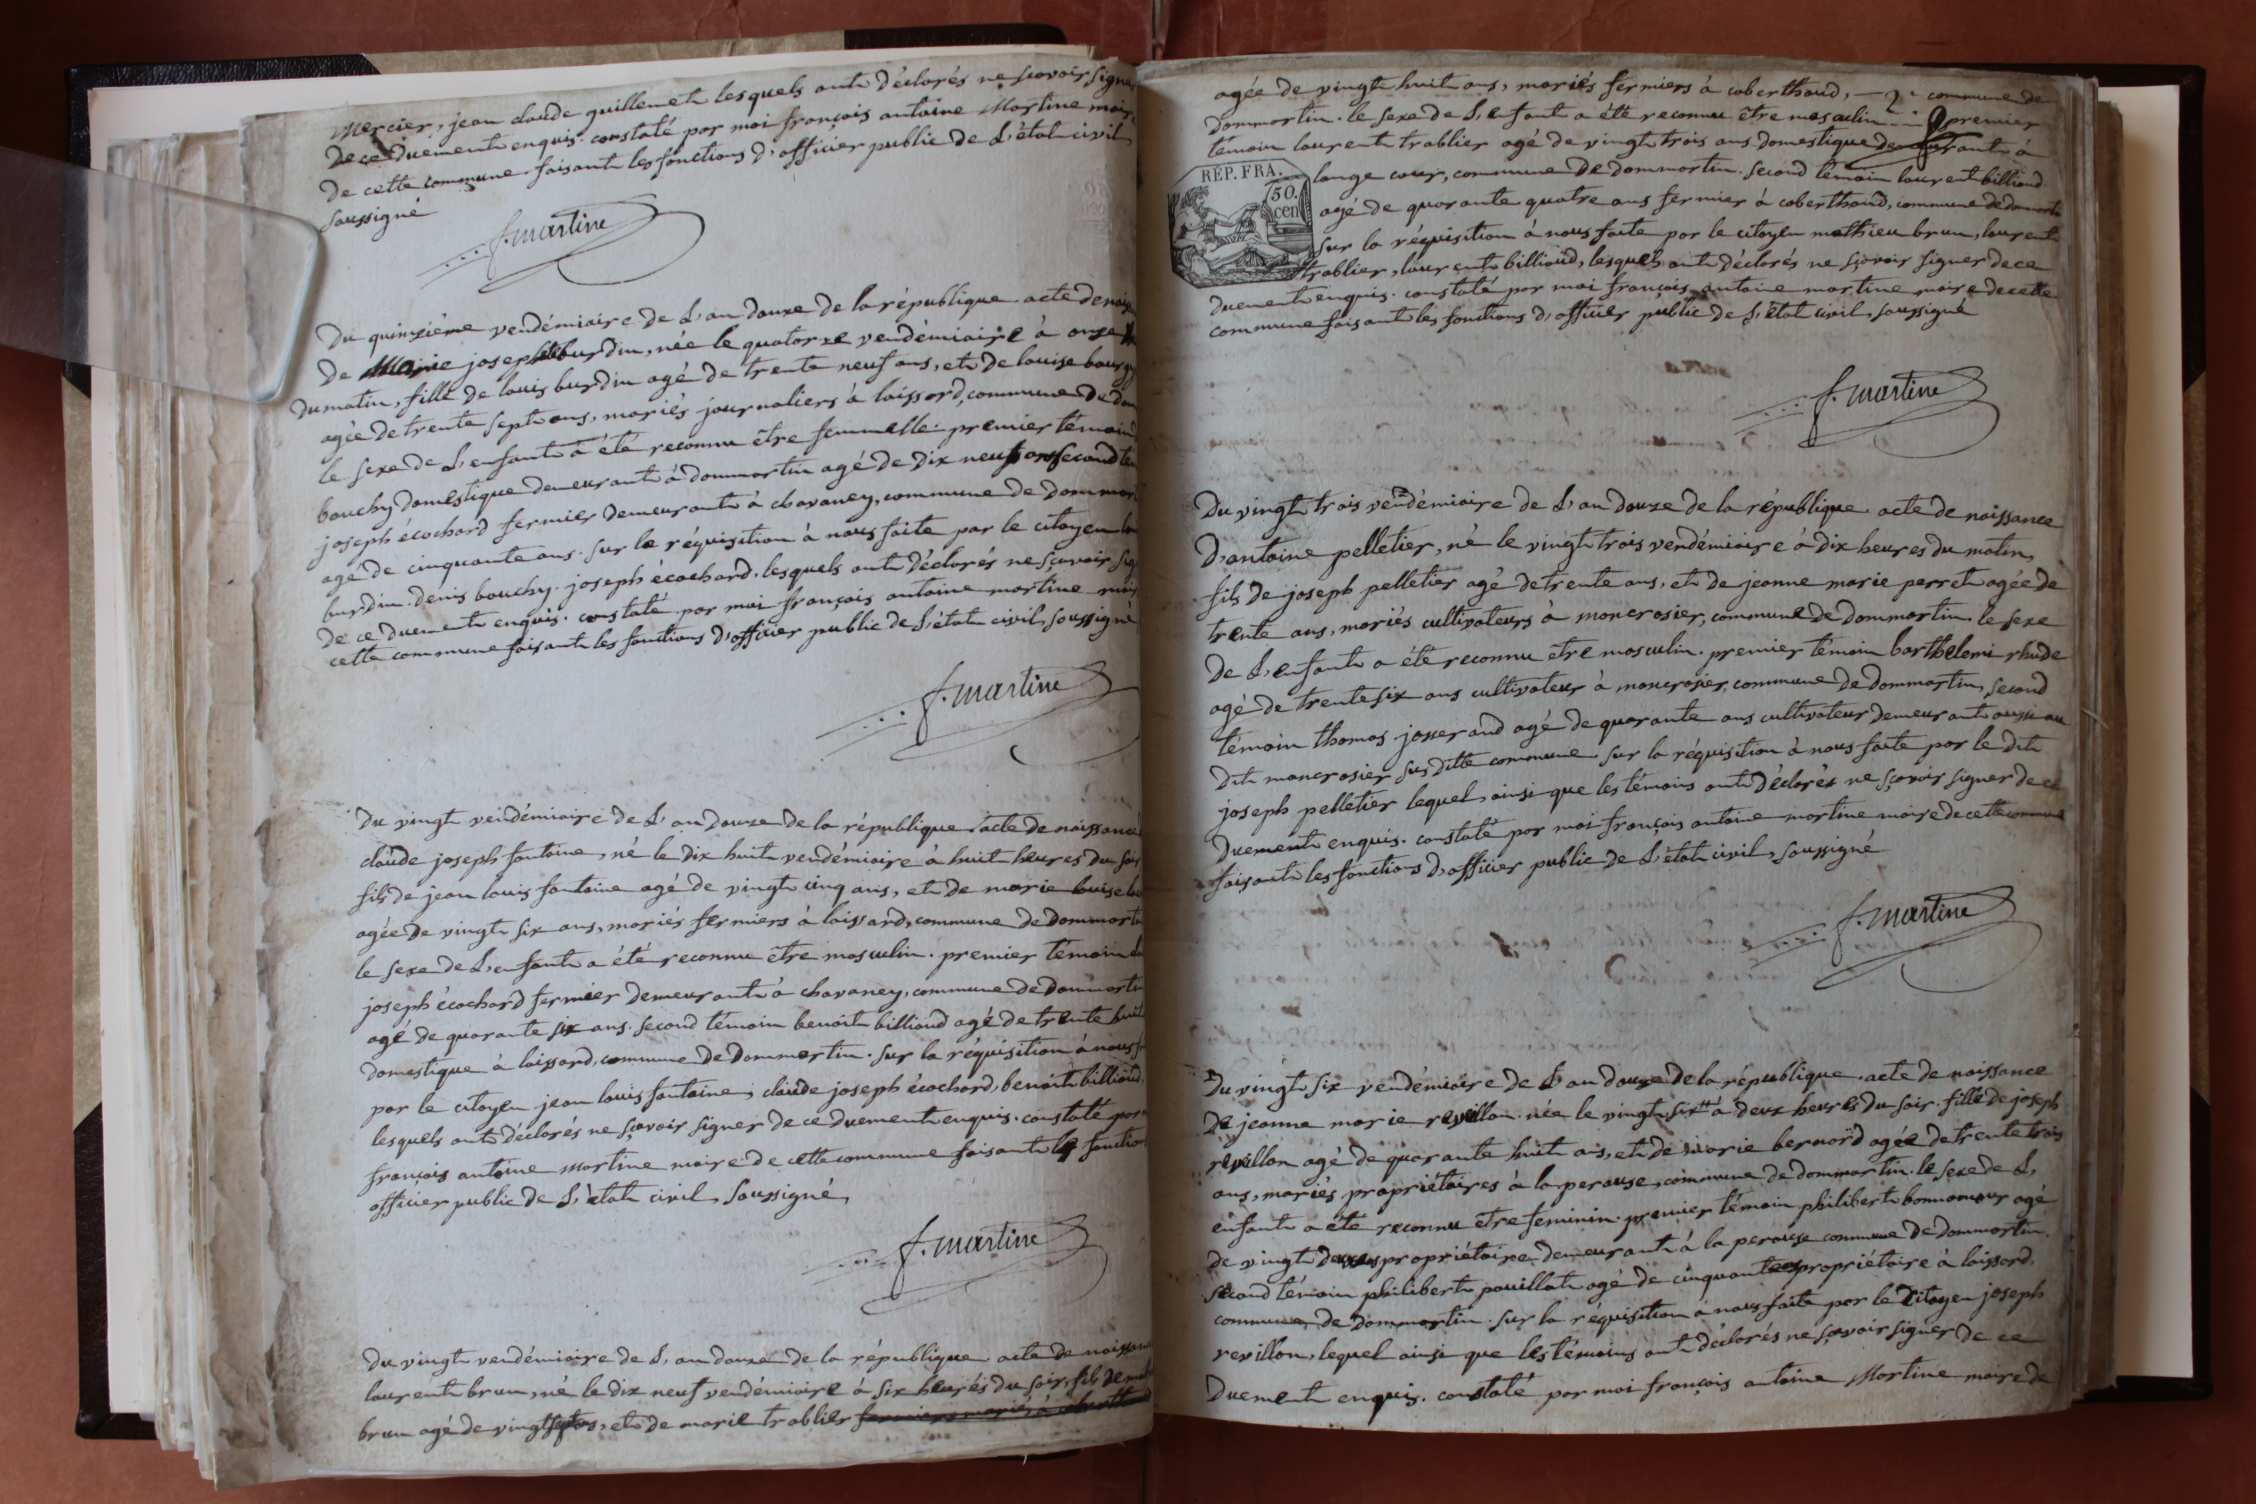 mercier, jean claude guillemet lesquels ont déclarés ne sçavoir signer
de ce duement enquis. constaté par moi françois antoine Martine maire
de cette commune faisant les fonctions d'officier public de L'état civil
soussigné
f. martine
Du quinzième vendémiaire de L'an douze de la république acte de naiss
De Marie josephte burdin, née le quatorze vendémiaire à onze
du matin, fille de louis burdin agé de trente neuf ans, et de louise
agée de trente sept ans, mariés journaliers à laissard, commune de dom
le sexe de L'enfant a été reconnu être femmelle. premier témoin
bouchy domestique demeurant à dommartin agé de dix neuf ans second tém
joseph écochard fermier demeurant à chavaney, commune de dommar
agé de cinquante ans. sur la réquisition à nous faite par le citoyen lou
burdin. denis bouchy. joseph écochard. lesquels ont déclarés ne sçavoir sig
de ce duement enquis. constaté par moi françois antoine martine mair
cette commune faisant les fonctions d'officier public de L'état civil soussigné
f. martine
Du vingt vendémiaire de L'an douze de la république acte de naissance
claude joseph fontaine, né le dix huit vendémiaire à huit heures du soir
fils de jean louis fontaine agé de vingt cinq ans, et de marie louise
agée de vingt six ans, mariés fermiers à laissard, commune de dommartin
le sexe de L'enfant a été reconnu être masculin. premier témoin cla
joseph écochard fermier demeurant à chavaney, commune de dommartin
agé de quarante six ans. second témoin benoit billioud agé de trente huit
domestique à laissard, commune de dommartin. sur la réquisition à nous f
par le citoyen jean louis fontaine, claude joseph écochard, benoit billioud,
lesquels ont déclarés ne sçavoir signer de ce duement enquis. constaté par
françois antoine Martine maire de cette commune faisant les fonction
officier public de L'état civil, soussigné
f. martine
Du vingt vendémiaire de L'an douze de la république acte de naissan
laurent brun, né le dix neuf vendémiaire à six heures du soir, fils de mat
brun agé de vingt sept ans, et de marie trablier fermiers mariés à
agée de vingt huit ans, mariés fermiers à coberthoud, commune de
dommartin. le sexe de L'enfant a été reconnu être masculin premier
témoin laurent trablier agé de vingt trois ans domestique demeurant à
RÉP. FRA.
50.
cen
lange cour, commune de dommartin. second témoin laurent billioud
agé de quarante quatre ans fermier à coberthoud, commune de dommartin
sur la réquisition à nous faite par le citoyen mathieu brun, laurent
trablier, laurent billioud, lesquels ont déclarés ne sçavoir signer de ce
duement enquis. constaté par moi françois antoine martine maire de cette
commune faisant les fonctions d'officier public de L'état civil, soussigné
f. martine
Du vingt trois vendémiaire de L'an douze de la république acte de naissance
D'antoine pelletier, né le vingt trois vendémiaire à dix heures du matin,
fils de joseph pelletier agé de trente ans, et de jeanne marie perret agée de
trente ans, mariés cultivateurs à moncrosier, commune de dommartin. le sexe
de L'enfant a été reconnu être masculin. premier témoin barthelemi rhude
agé de trente six ans cultivateur à moncrosier, commune de dommartin, second
témoin thomas josserand agé de quarante ans cultivateur demeurant aussi au
dit moncrosier sus ditte commune. sur la réquisition à nous faite par le dit
joseph pelletier lequel ainsi que les témoins ont déclarés ne sçavoir signer de ce
duement enquis. constaté par moi françois antoine martine maire de cette commune
faisant les fonctions d'officier public de L'état civil, soussigné
f. martine
Du vingt six vendémiaire de L'an douze de la république. acte de naissance
De jeanne marie revillon née le vingt six à deux heures du soir. fille de joseph
revillon agé de quarante huit ans, et de marie bernard agée de trente trois
ans, mariés propriétaires à la perouse, commune de dommartin. le sexe de L'
enfant a été reconnu être féminin. premier témoin philibert bonnamour agé
de vingt deux ans propriétaire demeurant à la perouse commune de dommartin.
second témoin philibert pouillat agé de cinquante ans propriétaire à laissard.
commune de dommartin. sur la réquisition à nous faite par le citoyen joseph
revillon, lequel ainsi que les témoins ont déclarés ne sçavoir signer de ce
Duement enquis. constaté par moi françois antoine Martine maire de